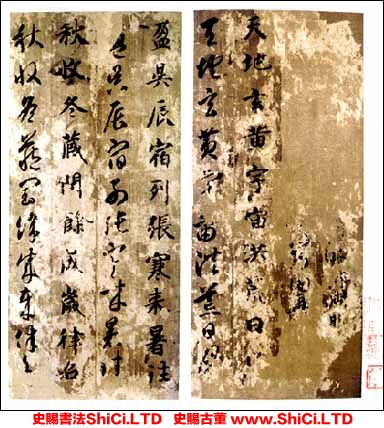 天地玄黄宇宙洪荒日
天地玄黄宇宙洪荒日月
盈昃辰宿列張寒来暑往
盈昃辰宿列張寒来暑往
秋收冬藏閏餘成歲律吕
秋收冬藏閏餘成歲律吕
史賜書法ShiCi.LTD 史賜古董 www.ShiCi.LTD